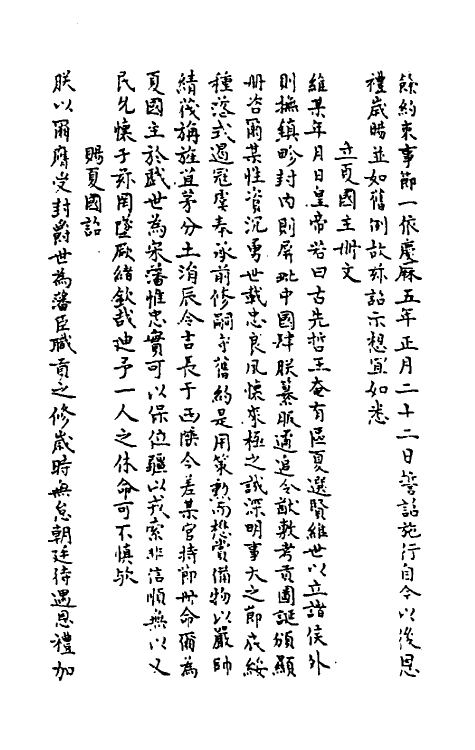 餘約束事節一依慶曆五年正月二十二日誓詔施行自今以後恩
禮歲賜並如舊例故玆詔示想宜知悉
立夏國主册文
維某年月日皇帝若曰古先哲王奄有區夏選賢維世以立諸侯外
則撫鎮畛封内則屏毗中國肆朕纂服遹追令猷敷考貢圖誕頒顯
册咨爾某性資沉勇世載忠良夙懷來極之誠深明事大之節底綏
種落式遏寇虐奉承前修嗣守舊約是用策勲而懋賞備物以嚴師
績茷旃旌苴茅分土涓辰令吉長于西陲今差某官持節册命爾為
夏國主於戲世為宋藩惟忠實可以保位疆以戎索非信順無以乂
民允懷于玆罔墜厥緒欽哉迪予一人之休命可不慎歟
賜夏國詔
朕以爾膺受封爵世為藩臣職貢之修歲時無怠朝廷待遇恩禮加